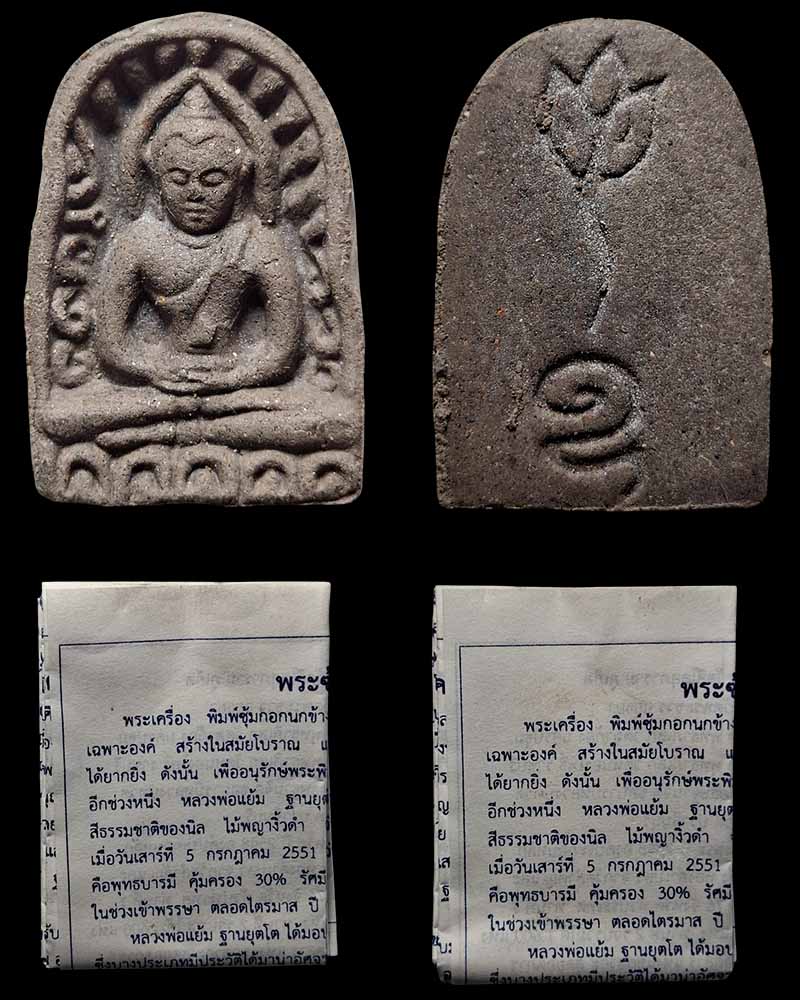 พระซุ้
พระเครื่อง พิมพ์ซุ้มกอกนกข้าง
เฉพาะองค์ สร้างในสมัยโบราณ แ
ได้ยากยิ่ง ดังนั้น เพื่ออนุรักษ์พระพิ
อีกช่วงหนึ่ง หลวงพ่อแย้ม ฐานยุต
สีธรรมชาติของนิล ไม้พญางิ้วดำ
เมื่อวันเสาร์ที่ 5 กรกฎาคม 2551
คือพุทธบารมี คุ้มครอง 30% รัศมี
ในช่วงเข้าพรรษา ตลอดไตรมาส ปี
หลวงพ่อแย้ม ฐานยุตโต ได้มอบ
ซึ่งบางประเภทมีประวัติได้มาน่าอัศจ
พระซุ้
พระเครื่อง พิมพ์ซุ้มกอกนกข้าง
เฉพาะองค์ สร้างในสมัยโบราณ แ
ได้ยากยิ่ง ดังนั้น เพื่ออนุรักษ์พระพิ
อีกช่วงหนึ่ง หลวงพ่อแย้ม ฐานยุต
สีธรรมชาติของนิล ไม้พญางิ้วดำ
เมื่อวันเสาร์ที่ 5 กรกฎาคม 2551
คือพุทธบารมี คุ้มครอง 30% รัศมี
ในช่วงเข้าพรรษา ตลอดไตรมาส ปี
หลวงพ่อแย้ม ฐานยุตโต ได้มอบ
ซึ่งบางประเภทมีประวัติได้มาน่าอัศจ